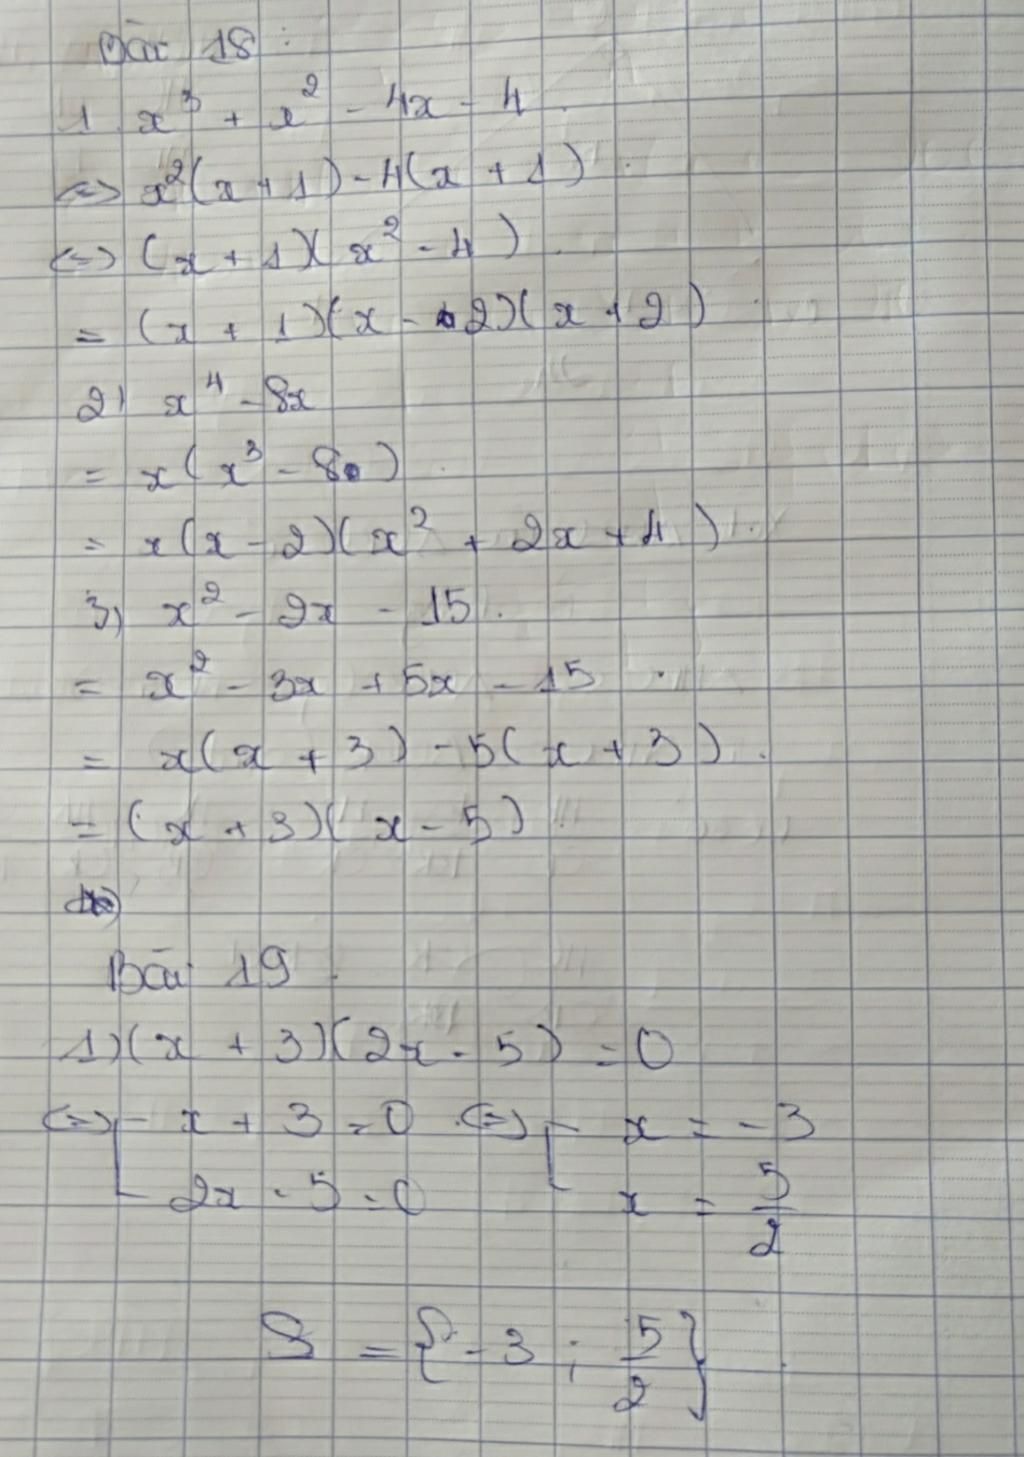 Bài 18:
1. x³ + x² - 4x - 4
<=> x²(x + 1) - 4(x + 1)
<=> (x + 1)(x² - 4)
= (x + 1)(x - 2)(x + 2)
2) x⁴ - 8x
= x(x³ - 8)
= x(x - 2)(x² + 2x + 4)
3) x² - 2x - 15
= x² - 3x + 5x - 15
= x(x + 3) - 5(x + 3)
= (x + 3)(x - 5)
Bài 19
1) (x + 3)(2x - 5) = 0
<=> [ x + 3 = 0 <=> [ x = -3
2x - 5 = 0 x = 5/2
S = {-3 ; 5/2}